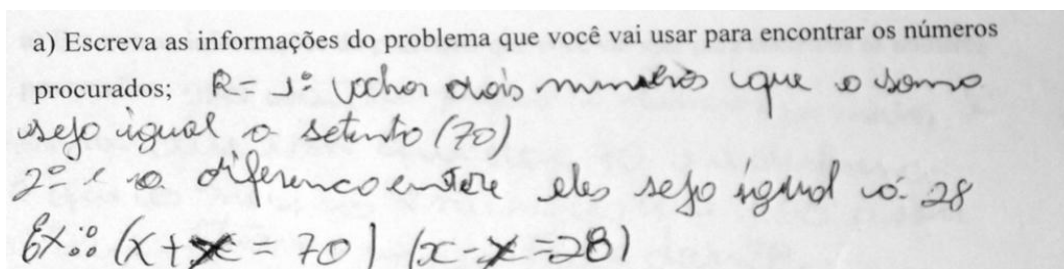 a) Escreva as informações do problema que você vai usar para encontrar os números
procurados; R= 1º dois numeros que a soma
seja igual a setenta (70)
2º e a diferenca entre eles seja igual a 28
Ex: (x+y = 70) (x-y=28)